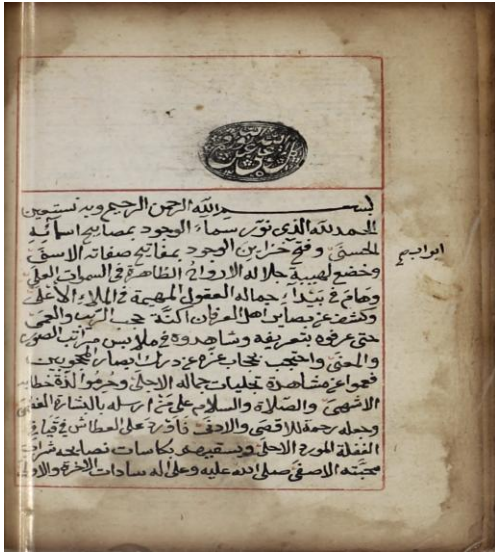 بسم الله الرحمن الرحيم وبه نستعين
الحمد لله الذي نور سماء الوجود بمصابيح اسمائه
الحسنى وفتح خزاين الوجود بمفاتيح صفاته الاسنى
وخضع لهيبة جلاله الارواح الظاهرة في السموات العلى
وهام في بيداء جماله العقول المهيمة في الملاء الأعلى
وكشف عن بصاير اهل العرفان اكنة حجب الريب والعمى
حتى عرفوه بتعريفه وشاهدوه في ملابس مراتب الصور
والمعنى واحتجب بحجاب عزه عن درك ابصار المحجوبين
فعموا عن مشاهدة تجليات جماله الاجلى وحرموا لذة خطابه
الاشهى والصلاة والسلام على من ارسله بالبشارة
وجعله رحمة للاقصى والادنى على العطاش في فيافي
الغفلة المورد الاحلى ويسقيهم بكاسات نصايحه شراب
محبته الاصفى صلى الله عليه وعلى اله سادات الاخرة والاولى